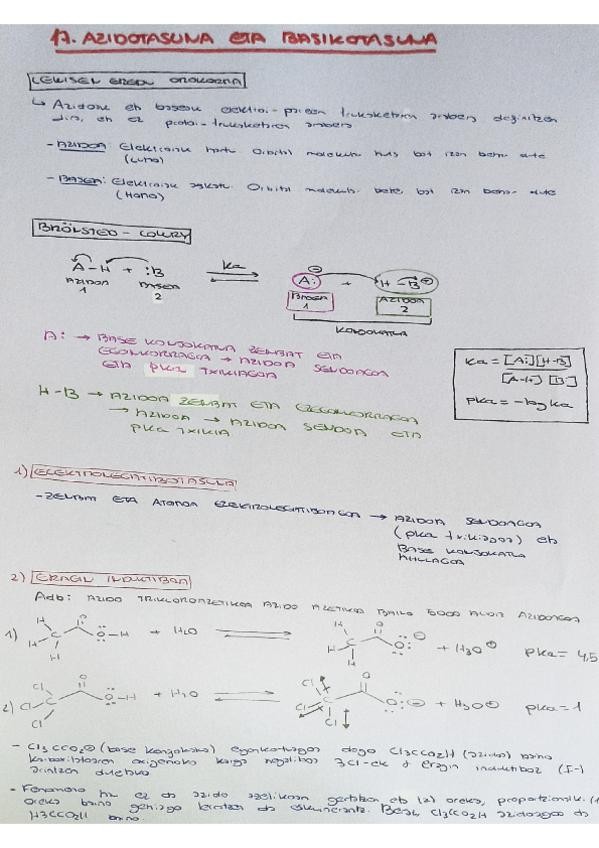 17. AZIDOTASUNA ETA BASIKOTASUNA
LEWISEN EREDU OROKORRA
↳ Azidoak eta baseak elektroi-pareen trukaketaren arabera definitzen
dira, eta ez protoi-trukaketaren arabera
- AZIDOA: Elektroiak hartu. Orbital molekular huts bat izan behar dute
(LUMO)
- BASEA: Elektroiak askatu. Orbital molekular bete bat izan behar dute
(HOMO)
BRÖNSTED - LOWRY
A-H + :B ka A: ⊖ + H-B ⊕
AZIDOA 1 BASEA 2 BASEA 1 AZIDOA 2
KONJOKATUA
A: → BASE KONJOKATUA ZENBAT ETA
EGONKORRAGOA → AZIDOA SENDOAGOA
ETA PKa TXIKIAGOA
ka = [A:][H-B]
[A-H] [B:]
pka = -log ka
H-B → AZIDOA ZENBAT ETA EZEGONKORRAGOA
→ AZIDOA → AZIDOA SENDOA ETA
PKA TXIKIA
1) ELEKTRONEGATIBOTASUNA
- ZENBAT ETA ATOMOA ELEKTRONEGATIBOAGOA → AZIDOA SENDOAGOA
(pka txikiagoa) eta
BASE KONJOKATUA
AHULAGOA
2) ERAGIN INDUKTIBOA
Adb: AZIDO TRIKLOROAZETIKOA AZIDO AZETIKOA BAINO 5000 ALDIZ AZIDOAGOA
1) H H H C O O-H + H2O H H H C O O ⊖ + H3O⊕ pka = 4,5
2) Cl Cl Cl C O O-H + H2O Cl Cl Cl C O O ⊖ + H3O⊕ pka = 1
- Cl3CCO2⊖ (base konjokatua) egonkorragoa dago Cl3CCO2H (azidoa) baino
karboxilatoaren oxigenoko karga negatiboa 3Cl-ek eragin induktiboz (I-)
arintzen dutelako
- Fenomeno hau ez da azido azetikoan gertatzen eta (2) oreka, proportzionalki (1)
oreka baino gehiago lerratzen da eskuinerantz. Beraz, Cl3CCO2H azidoagoa da
H3CCO2H baino